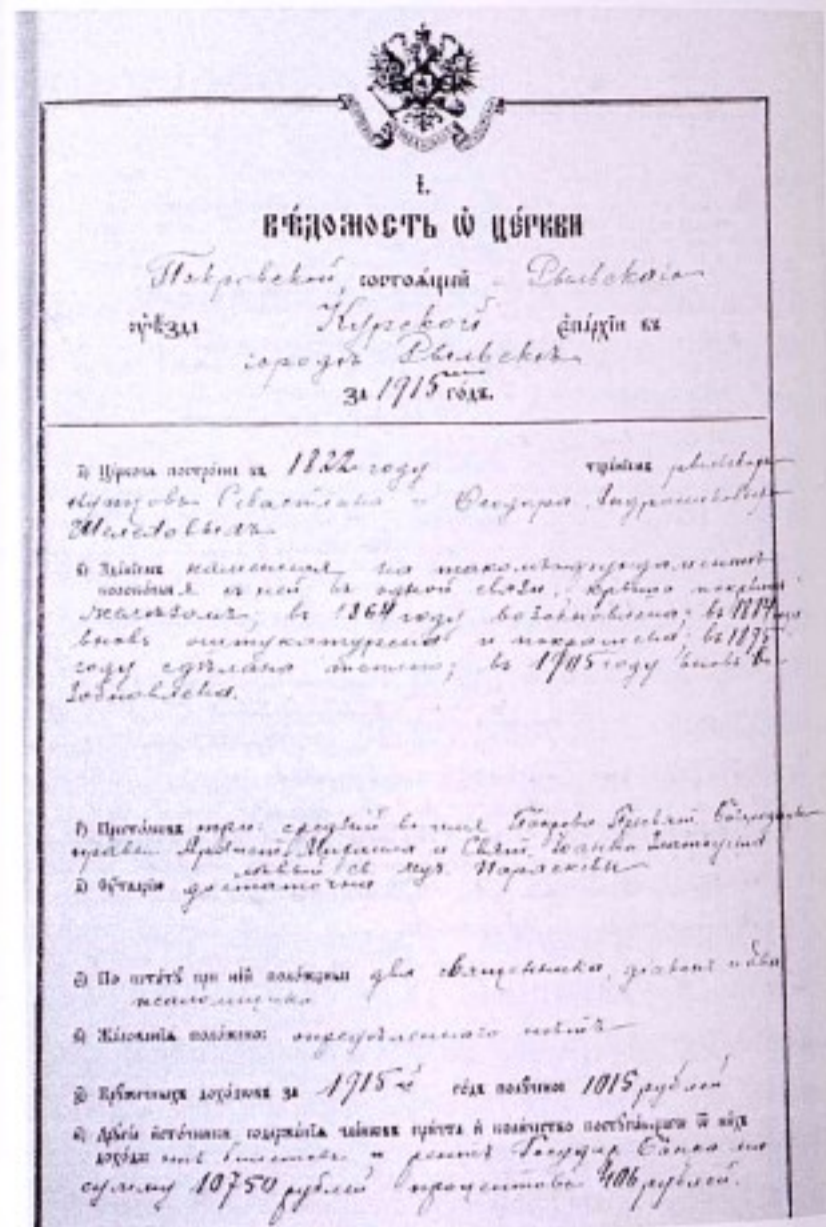 і.
ВѢДОМОСТЬ Ѡ ЦЕРКВИ
Покровской, состоящей Рыльскаго
уѣзда Курской епархіи въ
городѣ Рыльскѣ
за 1915 годъ.
а) Церковь построена въ 1822 году тщаніемъ рыльскихъ
купцовъ Севастіана и Ѳеодора Андроновичей
Шелеховыхъ
в) Зданіемъ каменная, на такомъ фундаментѣ
колокольня къ ней въ одной связи, крѣпко покрыта
желѣзомъ; въ 1864 году возобновлена; въ
вновь оштукатурена и покрашена; въ 1895
году сдѣлана ; въ 1905 году вновь во-
зобновлена.
г) Престоловъ три: средній во имя Покрова Пресвят. Богородицы
правый Архист. Михаила и Свят. Іоанна Златоуста
лѣвый св. муч. Параскевы
д) Ѹтварію достаточна
є) По штату при ней положены два священника, діаконъ и два
псаломщика
ѕ) Жалованья положено: опредѣленнаго нѣтъ
з) Кружечныхъ доходовъ за 1915 й годъ получено 1015 рублей
и) Другіе источники содержанія членовъ причта и количество поступающаго ѿ нихъ
дохода: отъ билетовъ и рентъ Государ. Банка на
сумму 10750 рублей процентовъ 406 рублей.